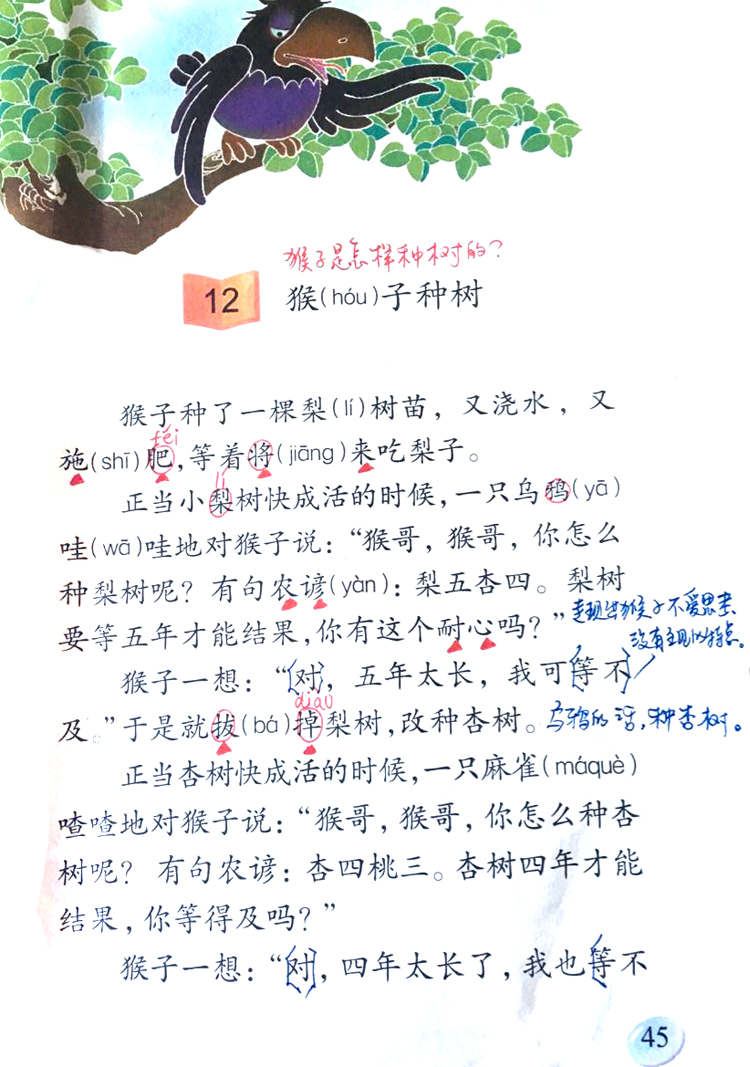 猴子是怎样种树的？
12 猴(hóu)子种树
猴子种了一棵梨(lí)树苗，又浇水，又
féi
施(shī)肥，等着将(jiāng)来吃梨子。
lí
正当小梨树快成活的时候，一只乌鸦(yā)
哇(wā)哇地对猴子说：“猴哥，猴哥，你怎么
种梨树呢？有句农谚(yàn)：梨五杏四。梨树
要等五年才能结果，你有这个耐心吗？”
表现出猴子不爱思考、
没有主见的特点。
猴子一想：“对，五年太长，我可等不
diào
及。”于是就拔(bá)掉梨树，改种杏树。
乌鸦的话，种杏树。
正当杏树快成活的时候，一只麻雀(máquè)
喳喳地对猴子说：“猴哥，猴哥，你怎么种杏
树呢？有句农谚：杏四桃三。杏树四年才能
结果，你等得及吗？”
猴子一想：“对，四年太长了，我也等不
45